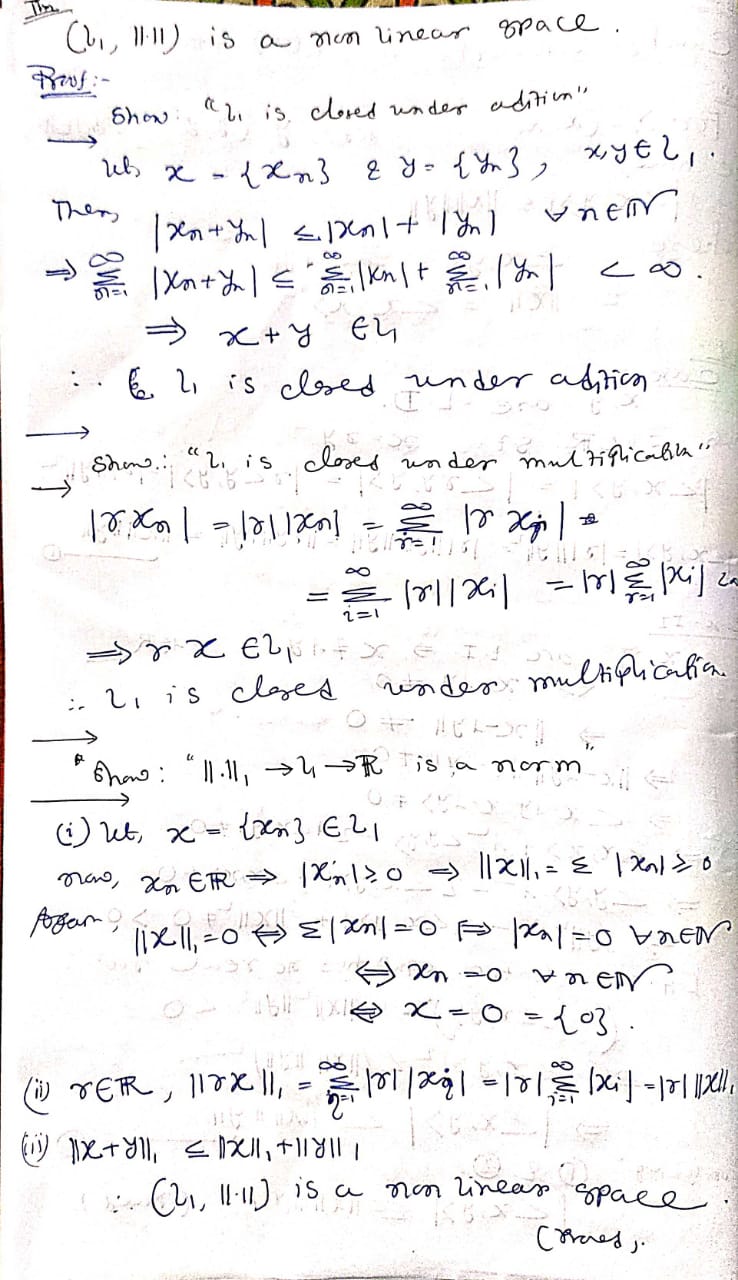 Thm
(l₁, ||·||) is a non linear space.
Proof:-
Show: "l₁ is closed under adition"
let x = {xn} & y = {yn}, x,y ∈ l₁.
Then, |xn+yn| ≤ |xn| + |yn| ∀ n∈ℕ
⇒ ∞Σn=1 |xn+yn| ≤ ∞Σn=1 |xn| + ∞Σn=1 |yn| < ∞.
⇒ x+y ∈ l₁
∴ l₁ is closed under adition
Show: "l₁ is closed under multiplication"
|r xn| = |r||xn| = ∞Σi=1 |r xi| =
= ∞Σi=1 |r||xi| = |r| ∞Σi=1 |xi| <∞
⇒ r x ∈ l₁
∴ l₁ is closed under multiplication.
* Show: "||·||₁ → l₁ → ℝ is a norm"
(i) let, x = {xn} ∈ l₁
now, xn ∈ ℝ ⇒ |xn| ≥ 0 ⇒ ||x||₁ = Σ |xn| ≥ 0
Again, ||x||₁ = 0 ⇔ Σ|xn| = 0 ⇔ |xn| = 0 ∀ n∈ℕ
⇔ xn = 0 ∀ n∈ℕ
⇔ x = 0 = {0}.
(ii) r∈ℝ, ||rx||₁ = ∞Σi=1 |r||xi| = |r| ∞Σi=1 |xi| = |r| ||x||₁
(iii) ||x+y||₁ ≤ ||x||₁ + ||y||₁
∴ (l₁, ||·||) is a non linear space.
(Proved).